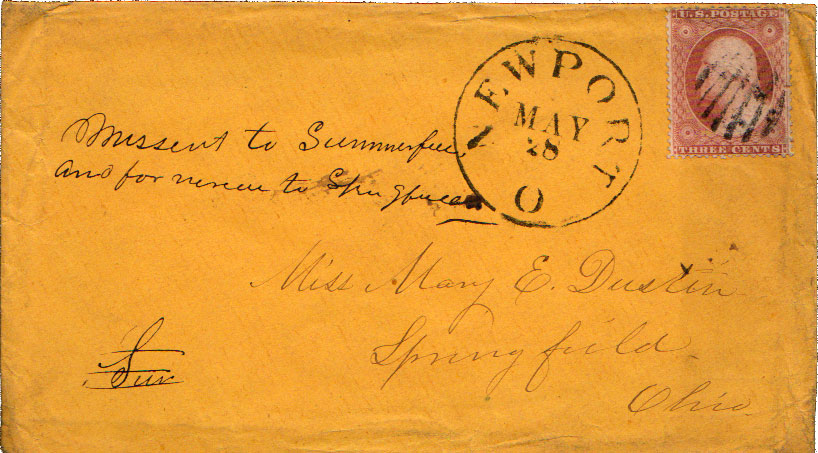 U.S. POSTAGE
THREE CENTS
NEWPORT O
MAY
28
Missent to Summerfiel
and forwarded to Springfield
Miss Mary E. Dustin
Springfield
Ohio